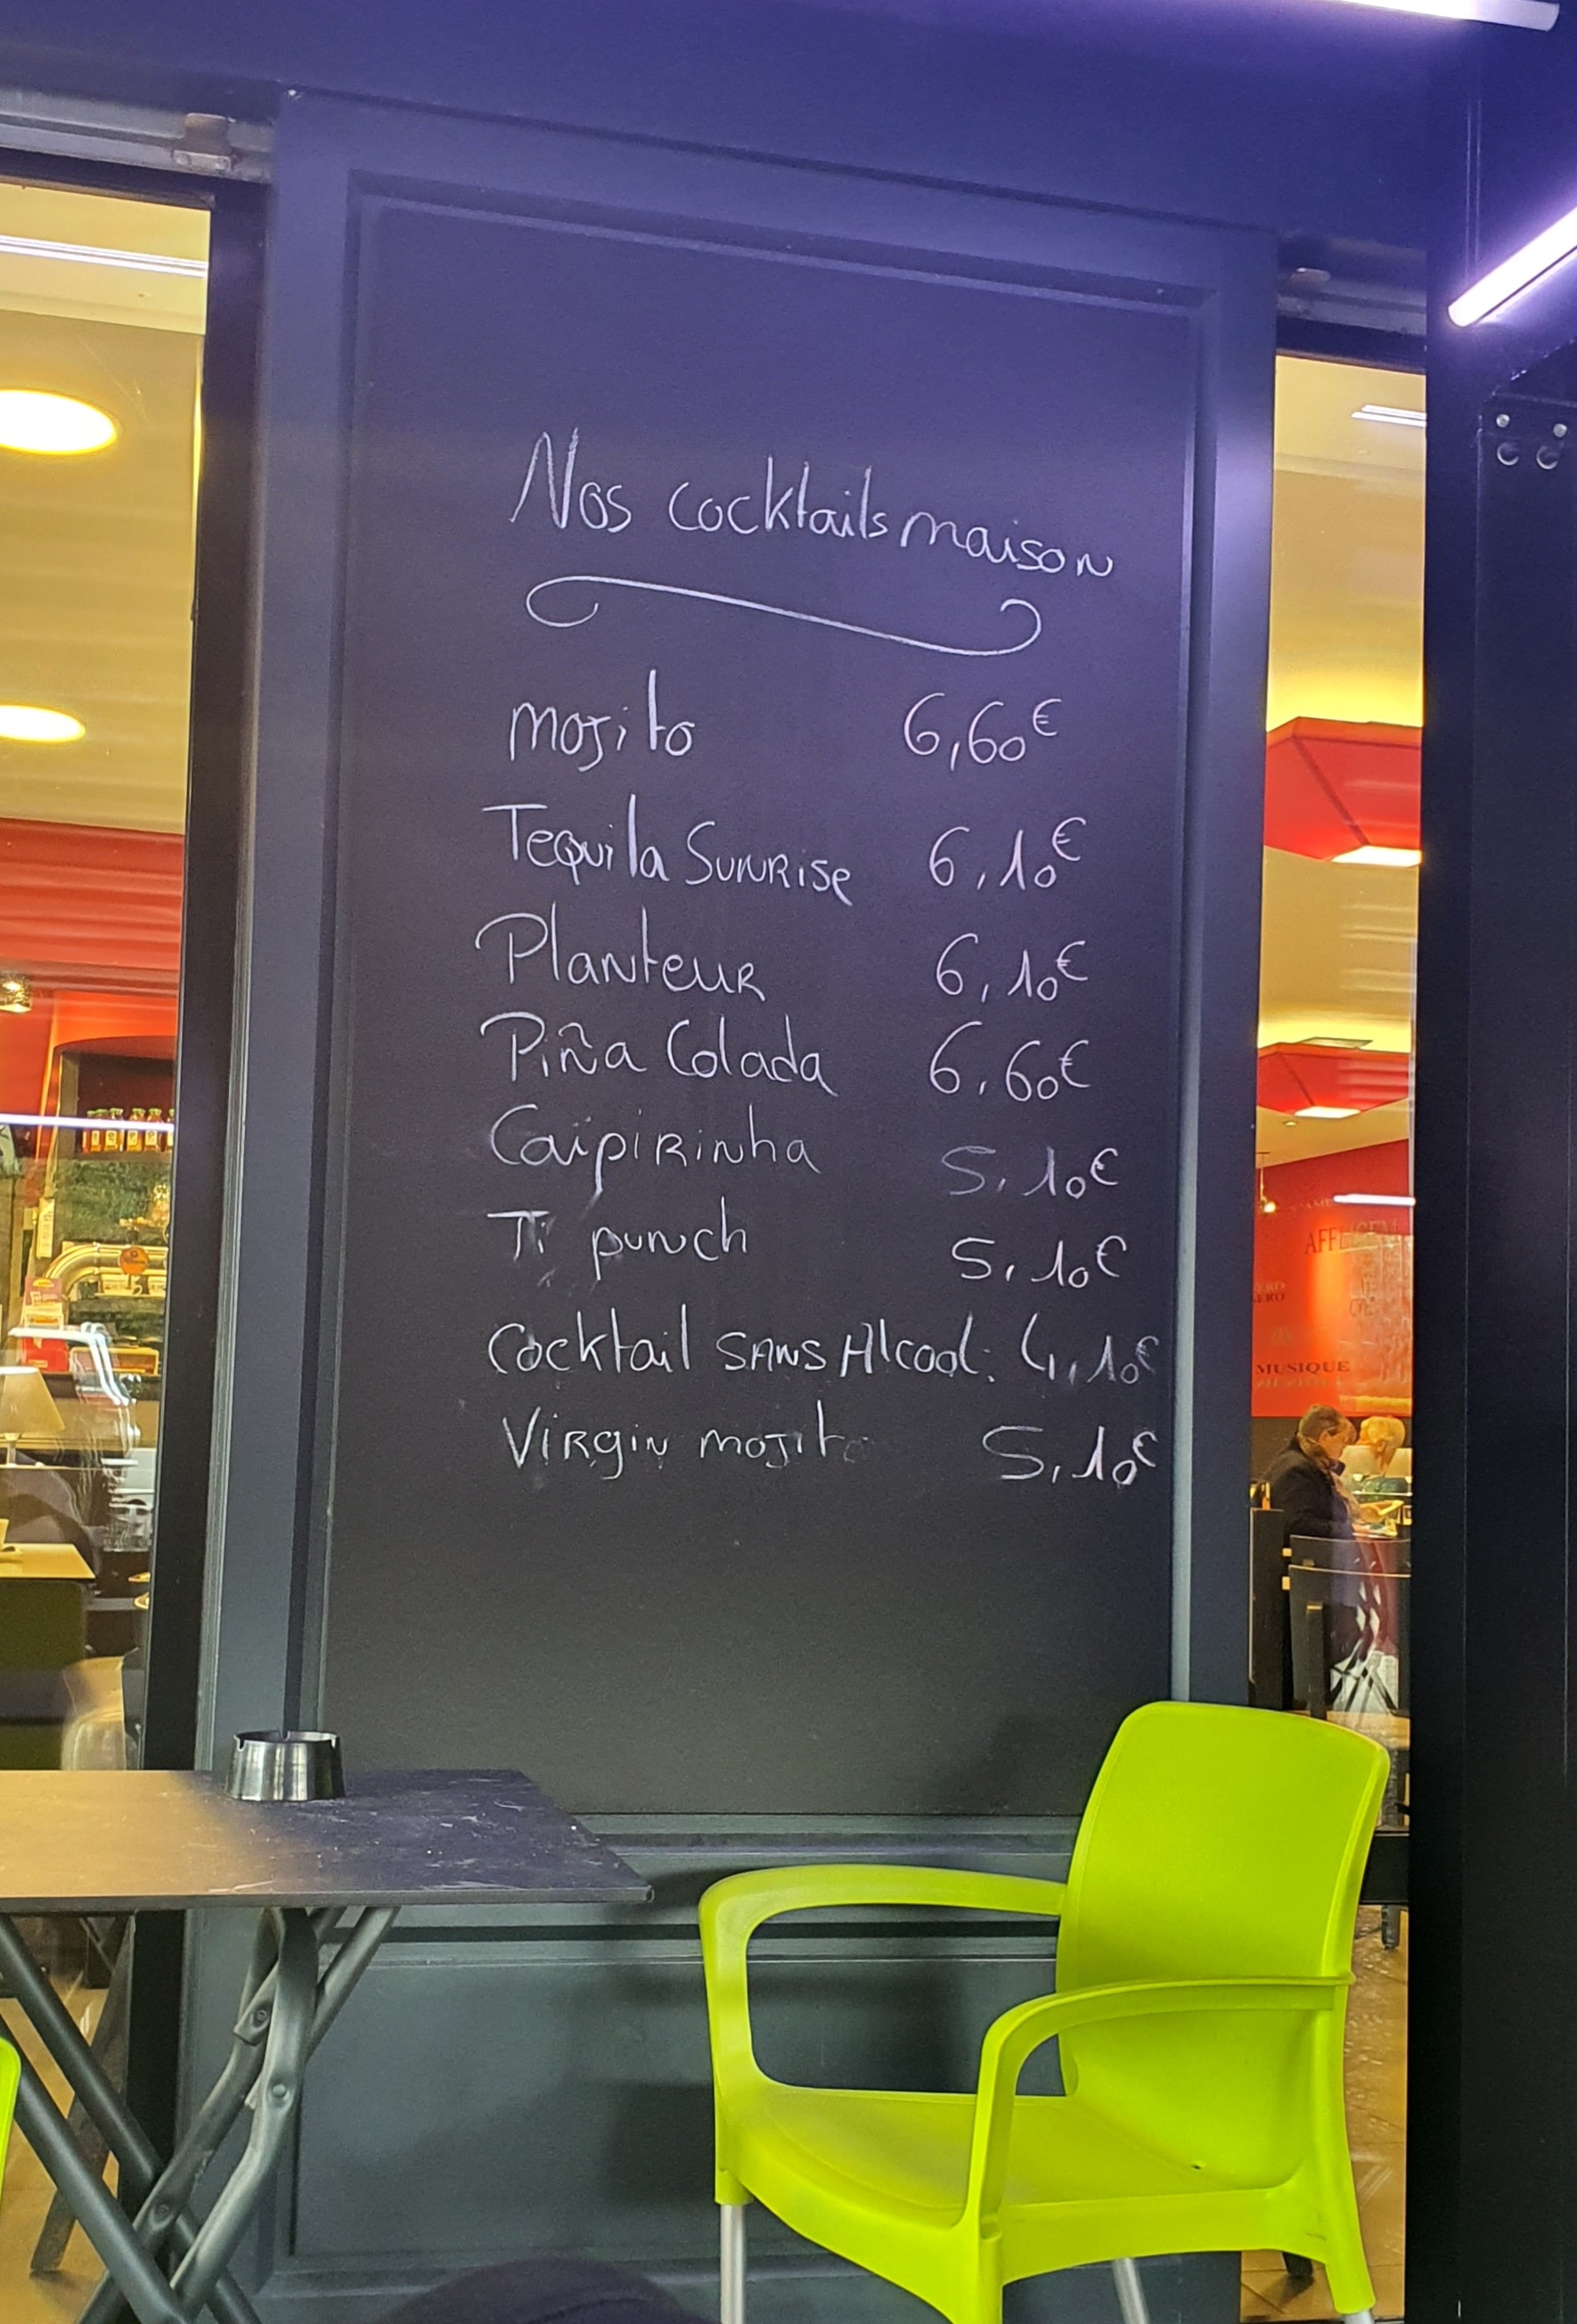 Nos cocktails maison
mojito 6,60€
Tequila Sunrise 6,10€
Planteur 6,10€
Piña Colada 6,60€
Caïpirinha 5,10€
Ti punch 5,10€
Cocktail SANS Alcool: 4,10€
Virgin mojito 5,10€
MUSIQUE